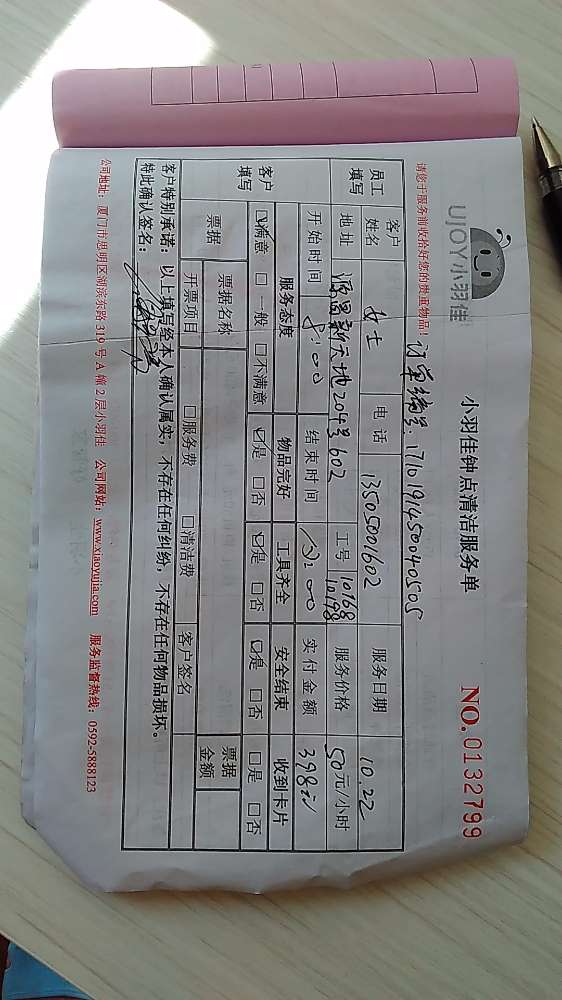 UJOY小羽佳
小羽佳钟点清洁服务单
NO.0132799
请您于服务前收拾好您的贵重物品!
订单编号:1710191450040505
员工填写
客户姓名 女士 电话 13505001602 服务日期 10.22
地址 源昌新天地204号602 工号 10168 10198 服务价格 50元/小时
开始时间 8:00 结束时间 12:00 实付金额 398元
客户填写
服务态度 物品完好 工具齐全 安全结束 收到卡片
☑满意 □一般 □不满意 ☑是 □否 ☑是 □否 ☑是 □否 □是 □否
票据
票据名称 票据金额
开票项目 □服务费 □清洁费 客户签名
客户特别承诺:以上填写经本人确认属实,不存在任何纠纷,不存在任何物品损坏。
特此确认签名:
公司地址:厦门市思明区湖滨东路319号A幢2层小羽佳 公司网站:www.xiaoyujia.com 服务监督热线:0592-5888123